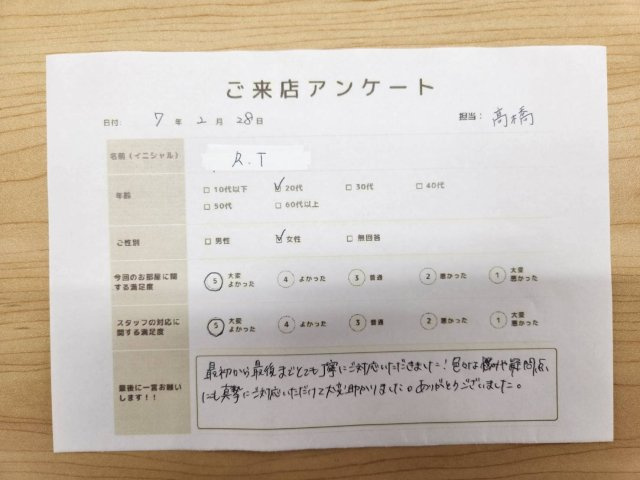 ご来店アンケート
日付: 7年 2月 28日 担当: 高橋
名前(イニシャル) R.T
年齢 □10代以下 ☑20代 □30代 □40代
□50代 □60代以上
ご性別 □男性 ☑女性 □無回答
今回のお部屋に関する満足度 5 大変よかった 4 よかった 3 普通 2 悪かった 1 大変悪かった
スタッフの対応に関する満足度 5 大変よかった 4 よかった 3 普通 2 悪かった 1 大変悪かった
最後に一言お願いします!!
最初から最後までとても丁寧にご対応いただきました!色々な悩みや疑問点
にも真摯にご対応いただけて大変助かりました。ありがとうございました。